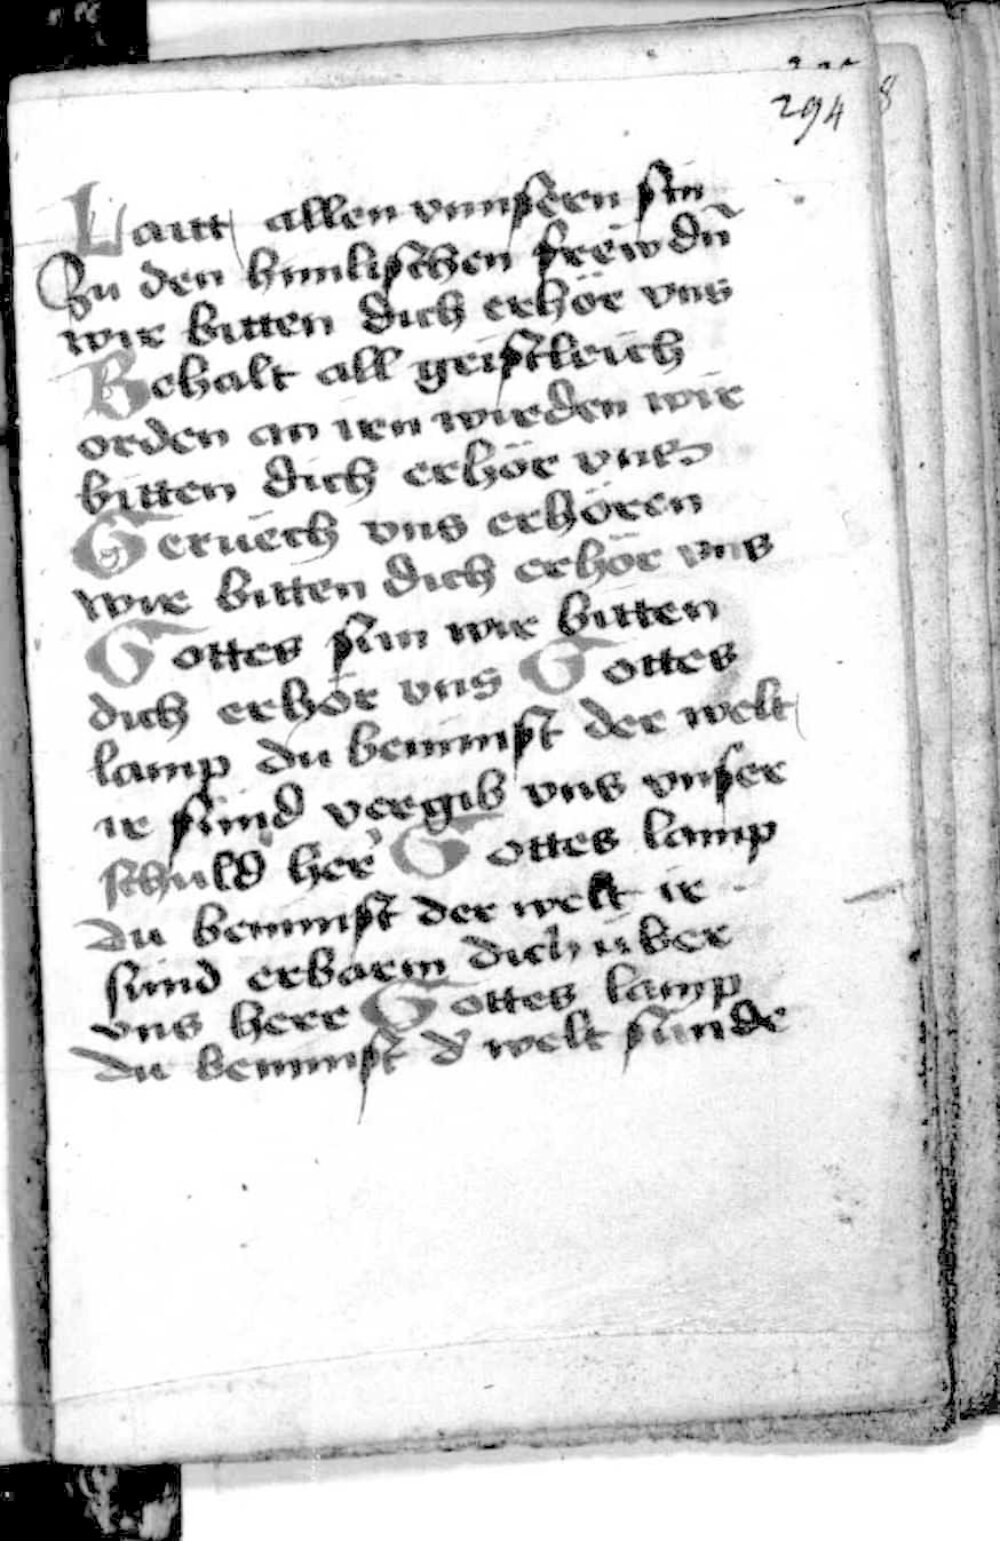 294
8
Laitt allen vnnsern sin
Zu den himlischen frewdn̄
wir bitten dich erhör vns
Behalt all geistleich
orden an iren wirden wir
bitten dich erhör vns
Geruech vns erhören
wir bitten dich erhör vns
Gottes sun wir bitten
dich erhör vns Gottes
lamp du benimpst der welt
ir sünd vergib vns vnser
schuld her Gottes lamp
du benimpst der welt ir
sünd erbarm dich über
vns herr Gottes lamp
du benimpst d' welt sünde